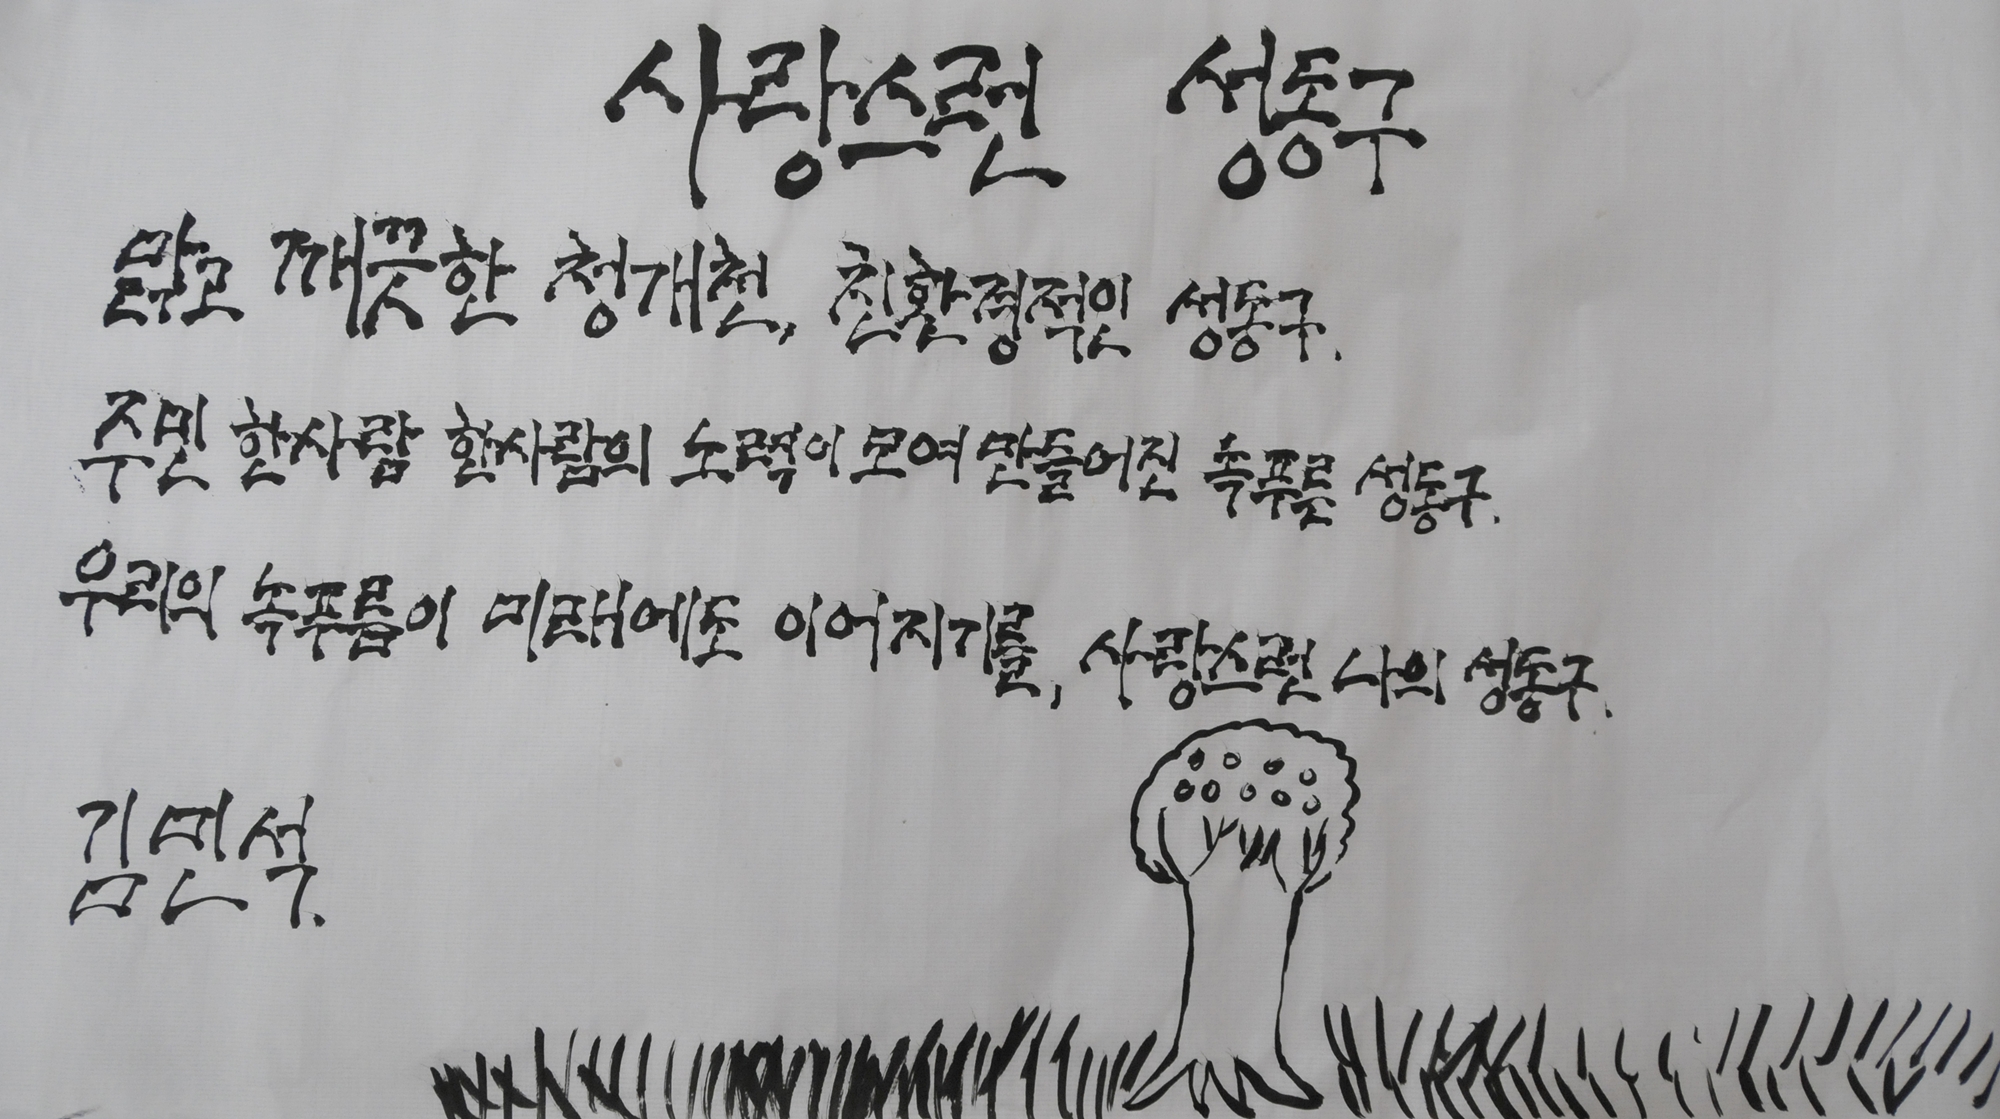 사랑스런 성동구
맑고 깨끗한 청개천, 친환경적인 성동구.
주민 한사람 한사람의 노력이 모여 만들어진 녹푸릇 성동구.
우리의 녹푸름이 미래에도 이어지기를, 사랑스런 나의 성동구.
김민석.